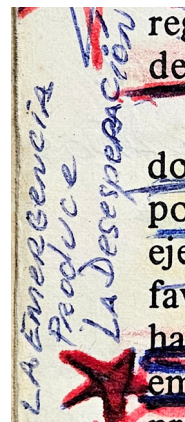 LA EMERGENCIA
PRODUCE
LA DESESPERACIÓN
reg
de
do
po
eje
fav
ha
em